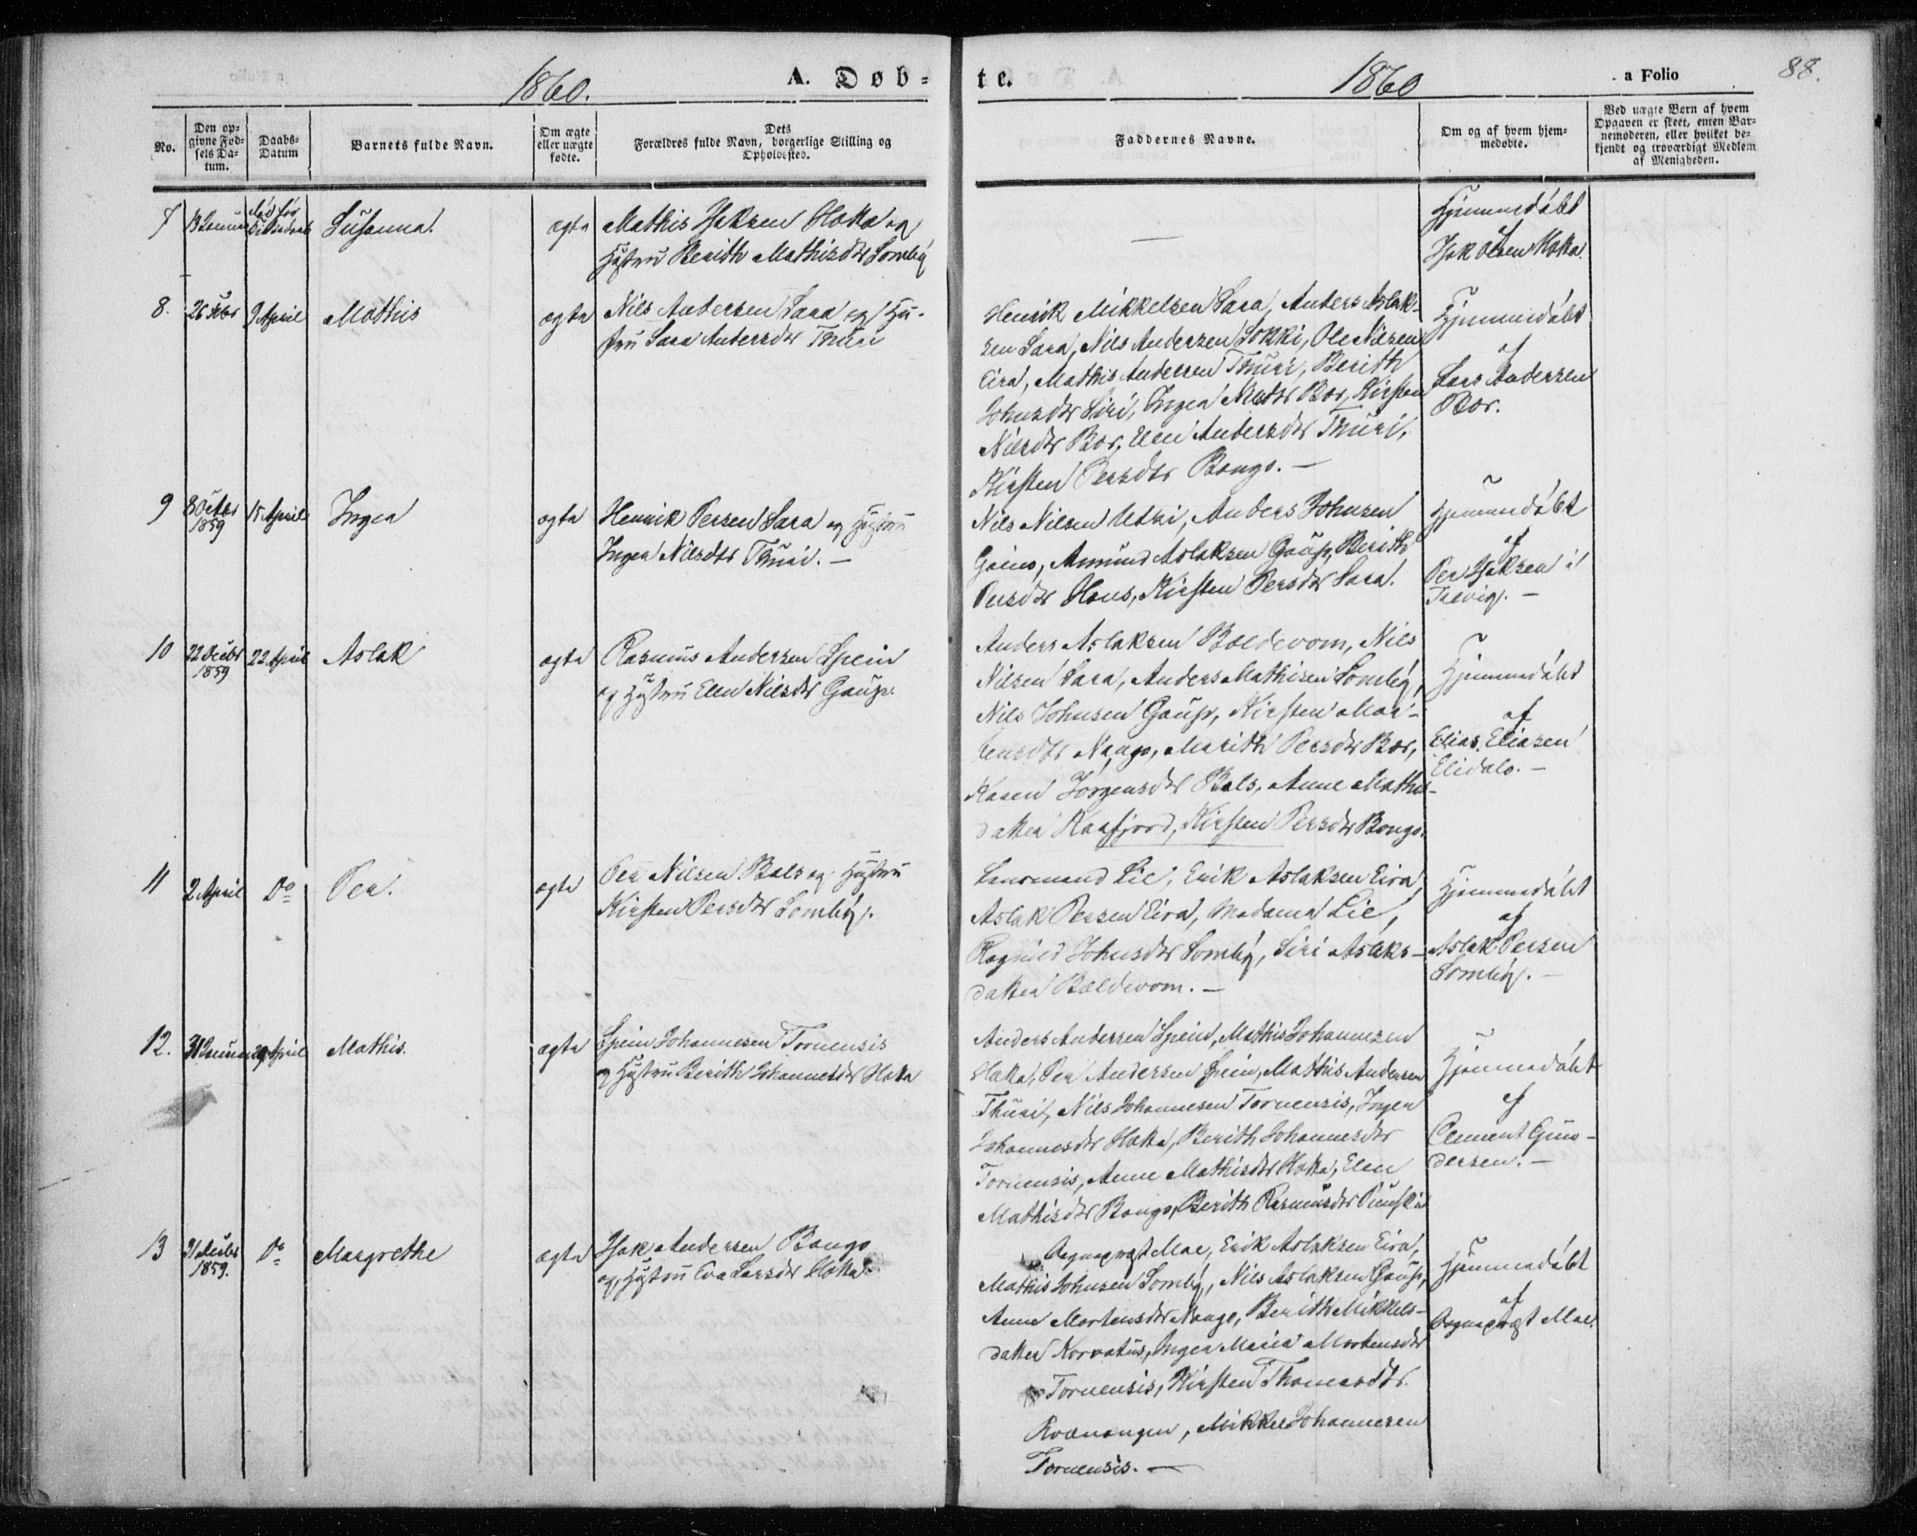 1860. A. Døb- te. 1860 a Folio 88.
No.
Den op-
givne Fød-
sels Da-
tum.
Daabs-
Datum
Barnets fulde Navn.
Om ægte
eller uægte
fødte.
Dets
Forældres fulde Navn, borgerlige Stilling og
Opholdssted.
Faddernes Navne.
Om og af hvem hjem-
medøbte.
Ved uægte Børn af hvem
Opgaven er skeet, enten Bar-
nemoderen, eller hvilket be-
kjendt og troværdigt Medlem
af Menigheden.
7 Susanna. ægte
Mathis Isaksen Hætta og
Hustru Berith Mathisdtr Somby
—
Hjemmedøbt
af
Isak Olsen Hætta.
8. 26 Febr 9 April Mathis ægte
Nils Andersen Sara og Hu-
stru Sara Andersdtr Thuri
Henrik Mikkelsen Sara, Anders Aslak-
sen Sara, Nils Andersen Sokki, Ole Nilsen
Eira, Mathis Andersen Thuri, Berith
Johnsdtr Siri, Inger Nilsdtr Bær, Kirsten
Nilsdtr Bær, Elen Andersdtr Thuri,
Kirsten Persdtr Bongo. —
Hjemmedøbt
af
Lars Andersen
Bær.
9 8 Octbr
1859 15 April Inger ægte
Henrik Persen Sara og Hustru
Inger Nilsdtr Thuri. —
Nils Nilsen Utsi, Anders Johnsen
Gaino, Amund Aslaksen Gaup, Berith
Persdtr Hans, Kirsten Persdtr Sara.
Hjemmedøbt
af
Per Isaksen i
Talvig. —
10 22 Decbr
1859 22 April Aslak ægte
Rasmus Andersen Spein
og Hustru Elen Nilsdtr Gaup.
Anders Aslaksen Bældevom, Nils
Nilsen Sara, Anders Mathisen Somby,
Nils Johnsen Gaup, Kirsten Mor-
tensdtr Nango, Marith Persdtr Bær,
Karen Jörgensdtr Bals, Anne Mathis-
datter Kaafjord, Kirsten Persdtr Bongo.
Hjemmedøbt
af
Elias Eliasen
Elidalo. —
11 2 April Do Per. ægte
Per Nilsen Bals og Hustru
Kirsten Persdtr Somby.
Lensmand Lie, Erik Aslaksen Eira,
Aslak Persen Eira, Madame Lie,
Ragnild Johnsdtr Somby, Siri Aslaks-
datter Bældevom. —
Hjemmedøbt
af
Aslak Persen
Somby. —
12. 31 Januar 29 April Mathis. ægte
Spein Johannesen Tornensis
og Hustru Berith Johannesdtr Hætta
Anders Andersen Spein, Mathis Johannesen
Hætta, Per Andersen Spein, Mathis Andersen
Thuri, Nils Johannesen Tornensis, Inger
Johannesdtr Hætta, Berith Johannesdtr
Tornensis, Anne Mathisdtr Hætta, Elen
Mathisdtr Bongo, Berith Rasmusdtr
Hjemmedøbt
af
Clement Gun-
dersen. —
13 31 Decbr
1859. Do Margrethe ægte
Isak Andersen Bongo
og Hustru Eva Larsdtr Hætta
Sognepræst Mae, Erik Aslaksen Eira,
Mathis Johnsen Somby, Nils Aslaksen Gaup,
Anne Mortensdtr Nango, Berith Mikkels-
datter Korvatus, Inger Maria Mortensdtr
Tornensis, Kirsten Thomasdtr
Kvænangen, Mikkel Johannesen
Tornensis. —
Hjemmedøbt
af
Sognepræst Mae.